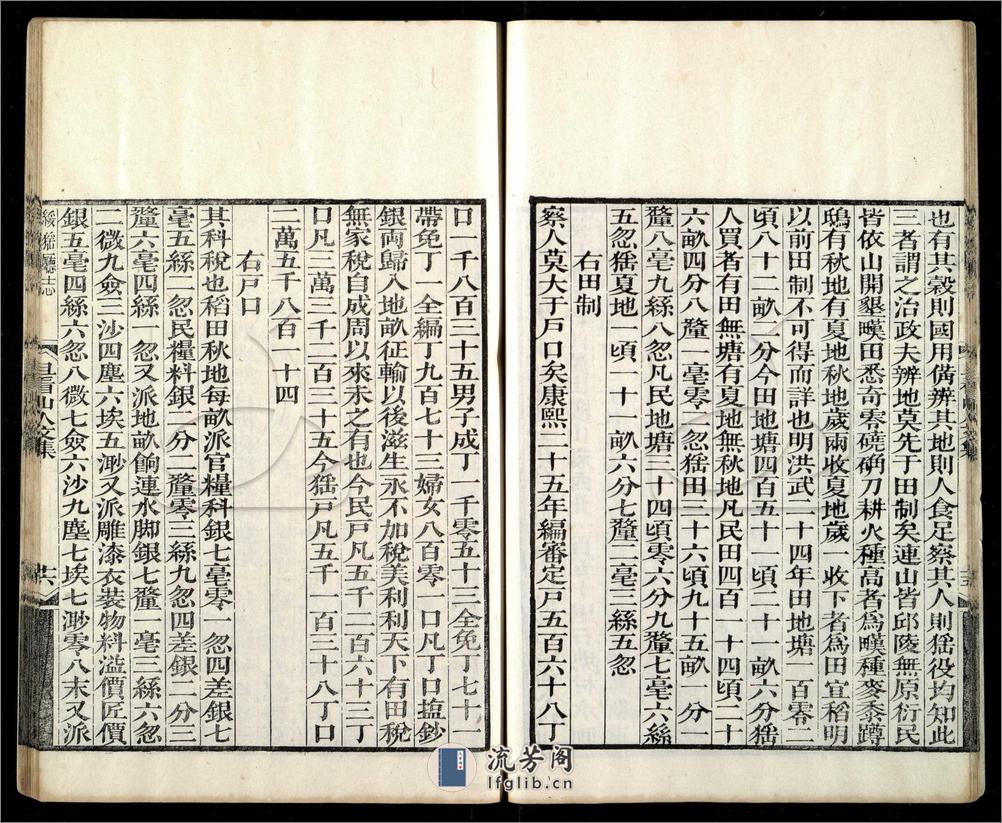 也有其穀則國用備辨其地則人食足察其人則徭役均知此
三者謂之治政夫辨地莫先于田制矣連山皆邱陵無原衍民
皆依山開墾嘆田悉奇零磽确刀耕火種高者爲嘆種麥黍蹲
鴟有秋地有夏地秋地歲兩收夏地歲一收下者爲田宜稻明
以前田制不可得而詳也明洪武二十四年田地塘一百零二
頃八十二畝二分今田地塘四百五十一頃二十一畝六分猺
人買者有田無塘有夏地無秋地凡民田四百一十四頃二十
六畝四分八釐一毫零一忽猺田三十六頃九十五畝一分一
釐八毫九絲八忽凡民地塘三十四頃零六分九釐七毫六絲
五忽猺夏地一頃一十一畝六分七釐二毫三絲五忽
右田制
察人莫大于戸口矣康熙二十五年編審定戸五百六十八丁
口一千八百三十五男子成丁一千零五十三全免丁七十一
帶免丁一全編丁九百七十三婦女八百零一口凡丁口塩鈔
銀両歸入地畝征輸以後滋生永不加稅美利利天下有田稅
無家稅自成周以來未之有也今民戸凡五千二百六十三丁
口凡三萬三千二百三十五今猺戸凡五千一百三十八丁口
二萬五千八百一十四
右戸口
其科稅也稻田秋地每畝派官糧料銀七毫零一忽四差銀七
毫五絲一忽民糧料銀二分一釐零三絲九忽四差銀二分三
釐六毫四絲一忽又派地畝餉連水脚銀七釐一毫三絲六忽
二微九僉三沙四塵六埃五渺又派雕漆衣裝物料溢價匠價
銀五毫四絲六忽八微七僉六沙九塵七埃七渺零八末又派
綏猺廳志
共
流芳阁
lfglib.cn